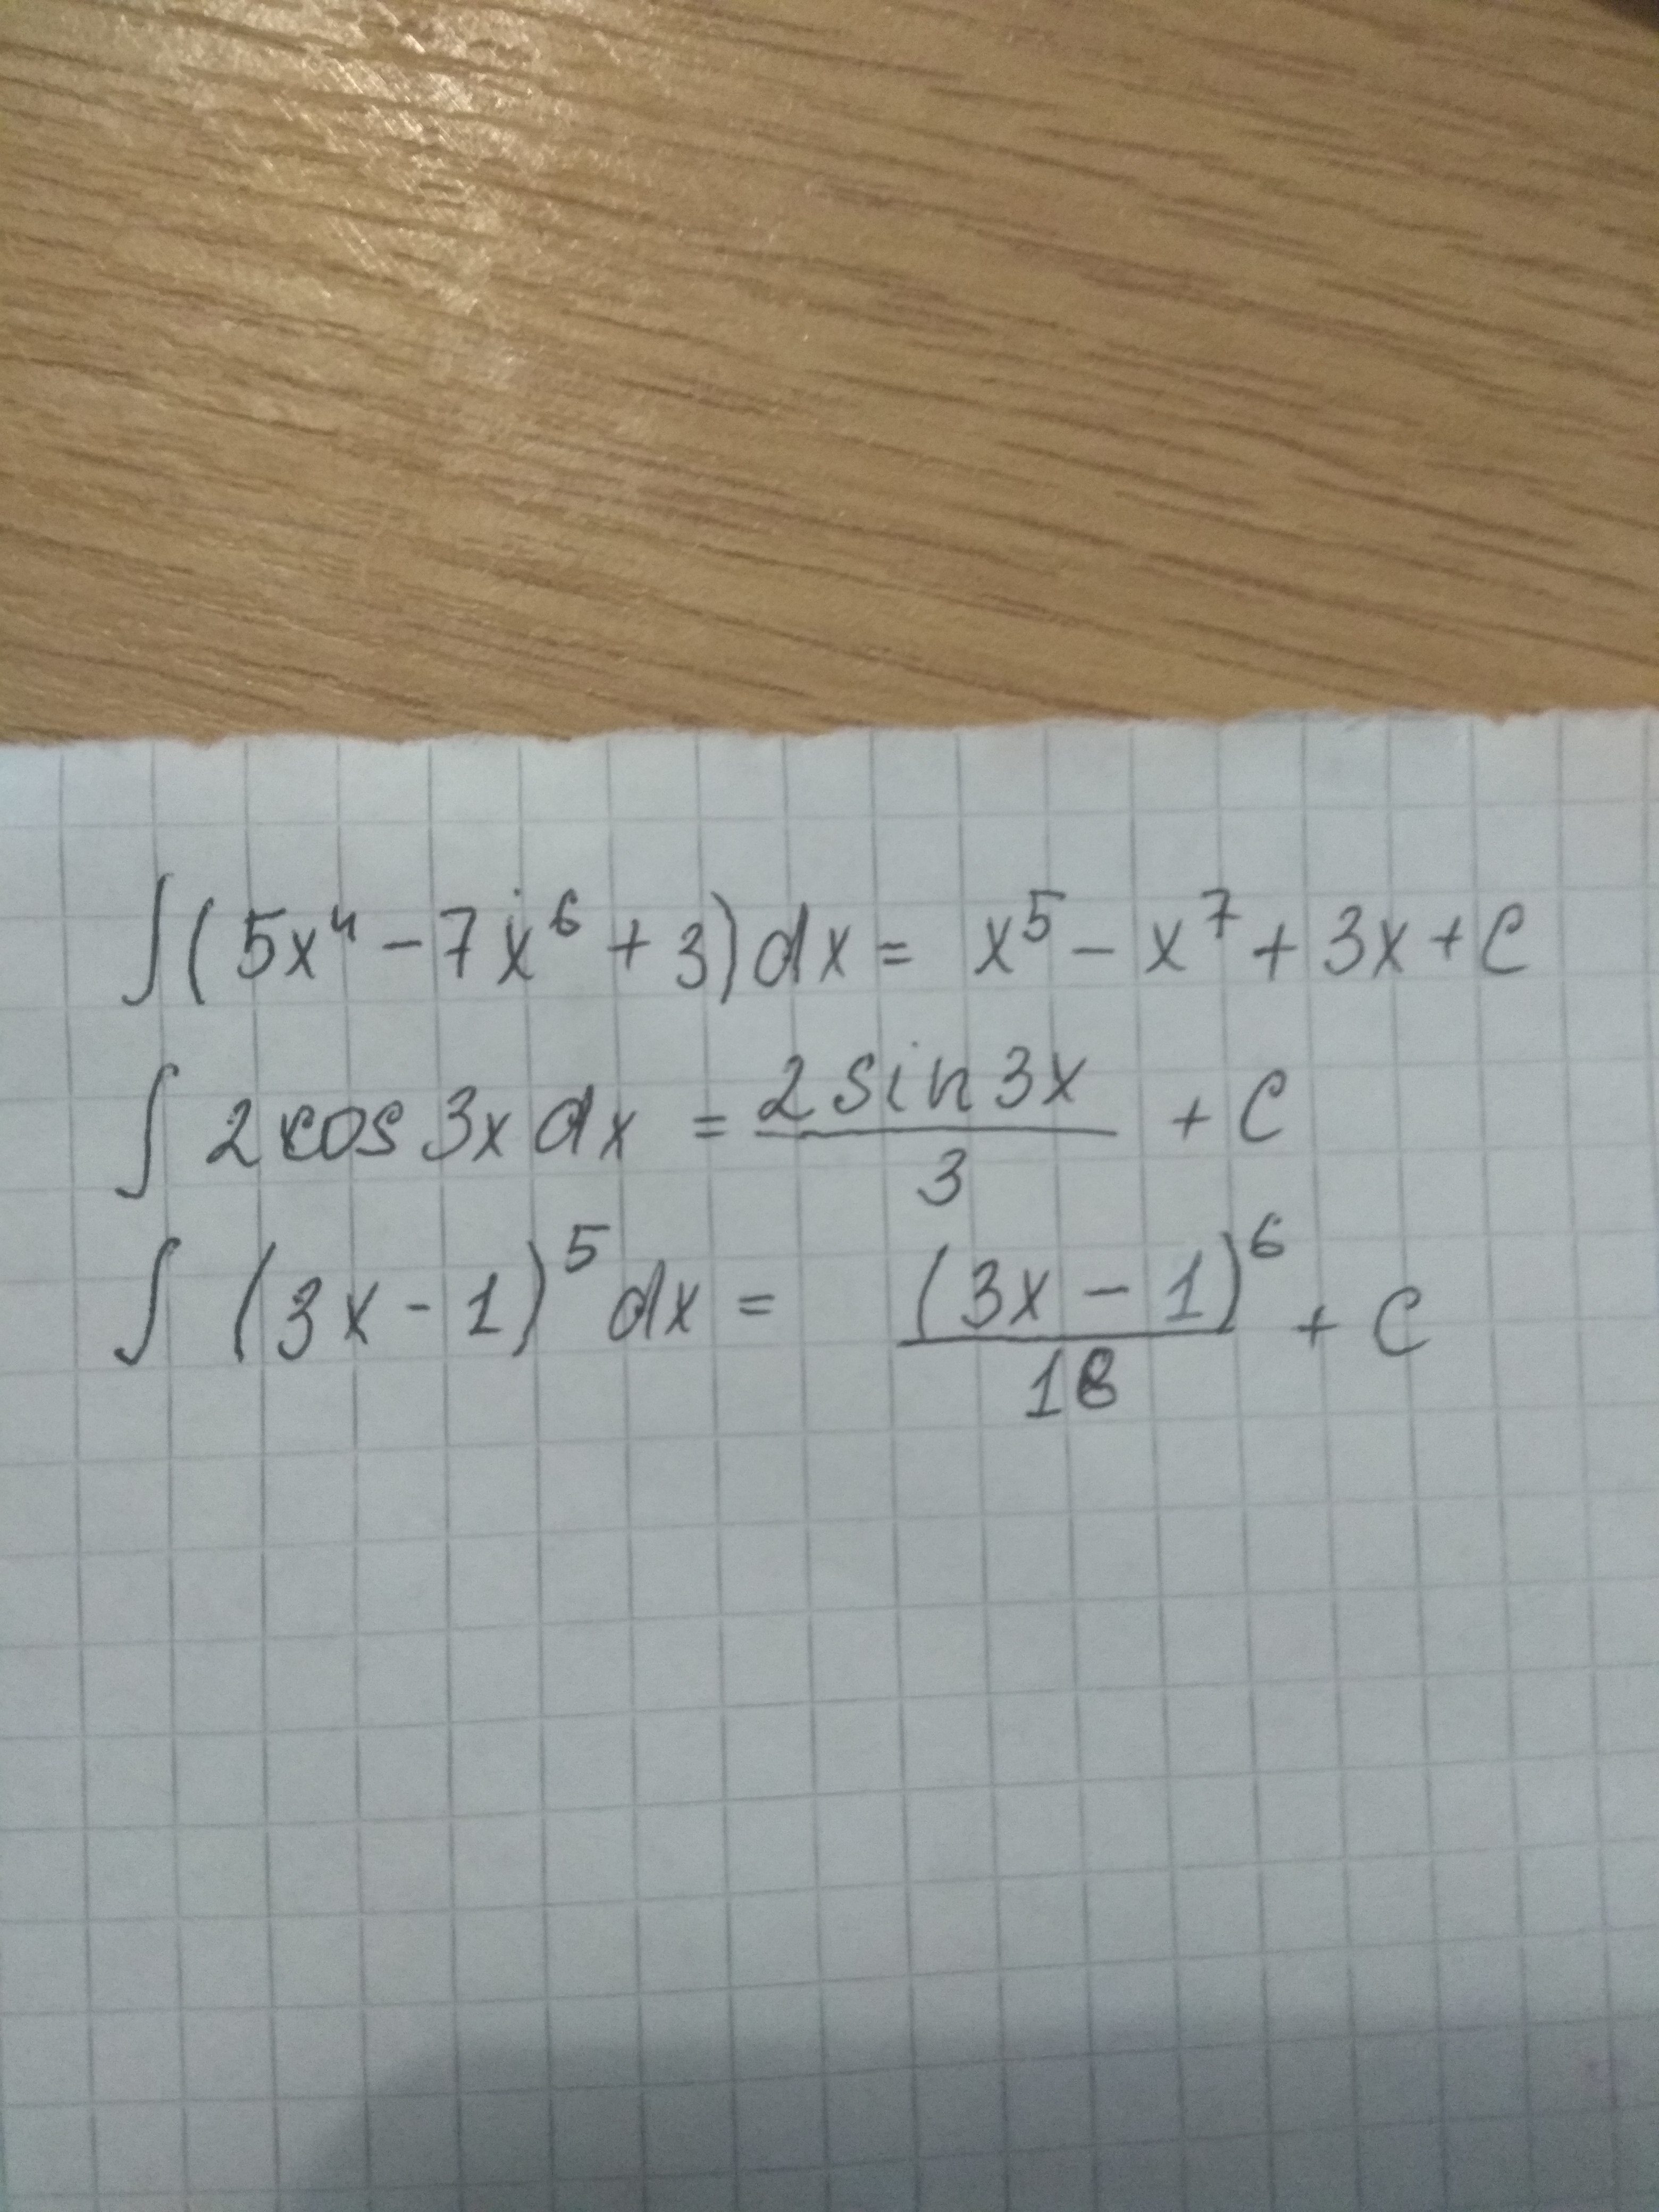 ∫(5x⁴ - 7x⁶ + 3)dx = x⁵ - x⁷ + 3x + C
∫ 2cos3xdx = (2sin3x)/3 + C
∫ (3x - 1)⁵dx = (3x - 1)⁶/18 + C